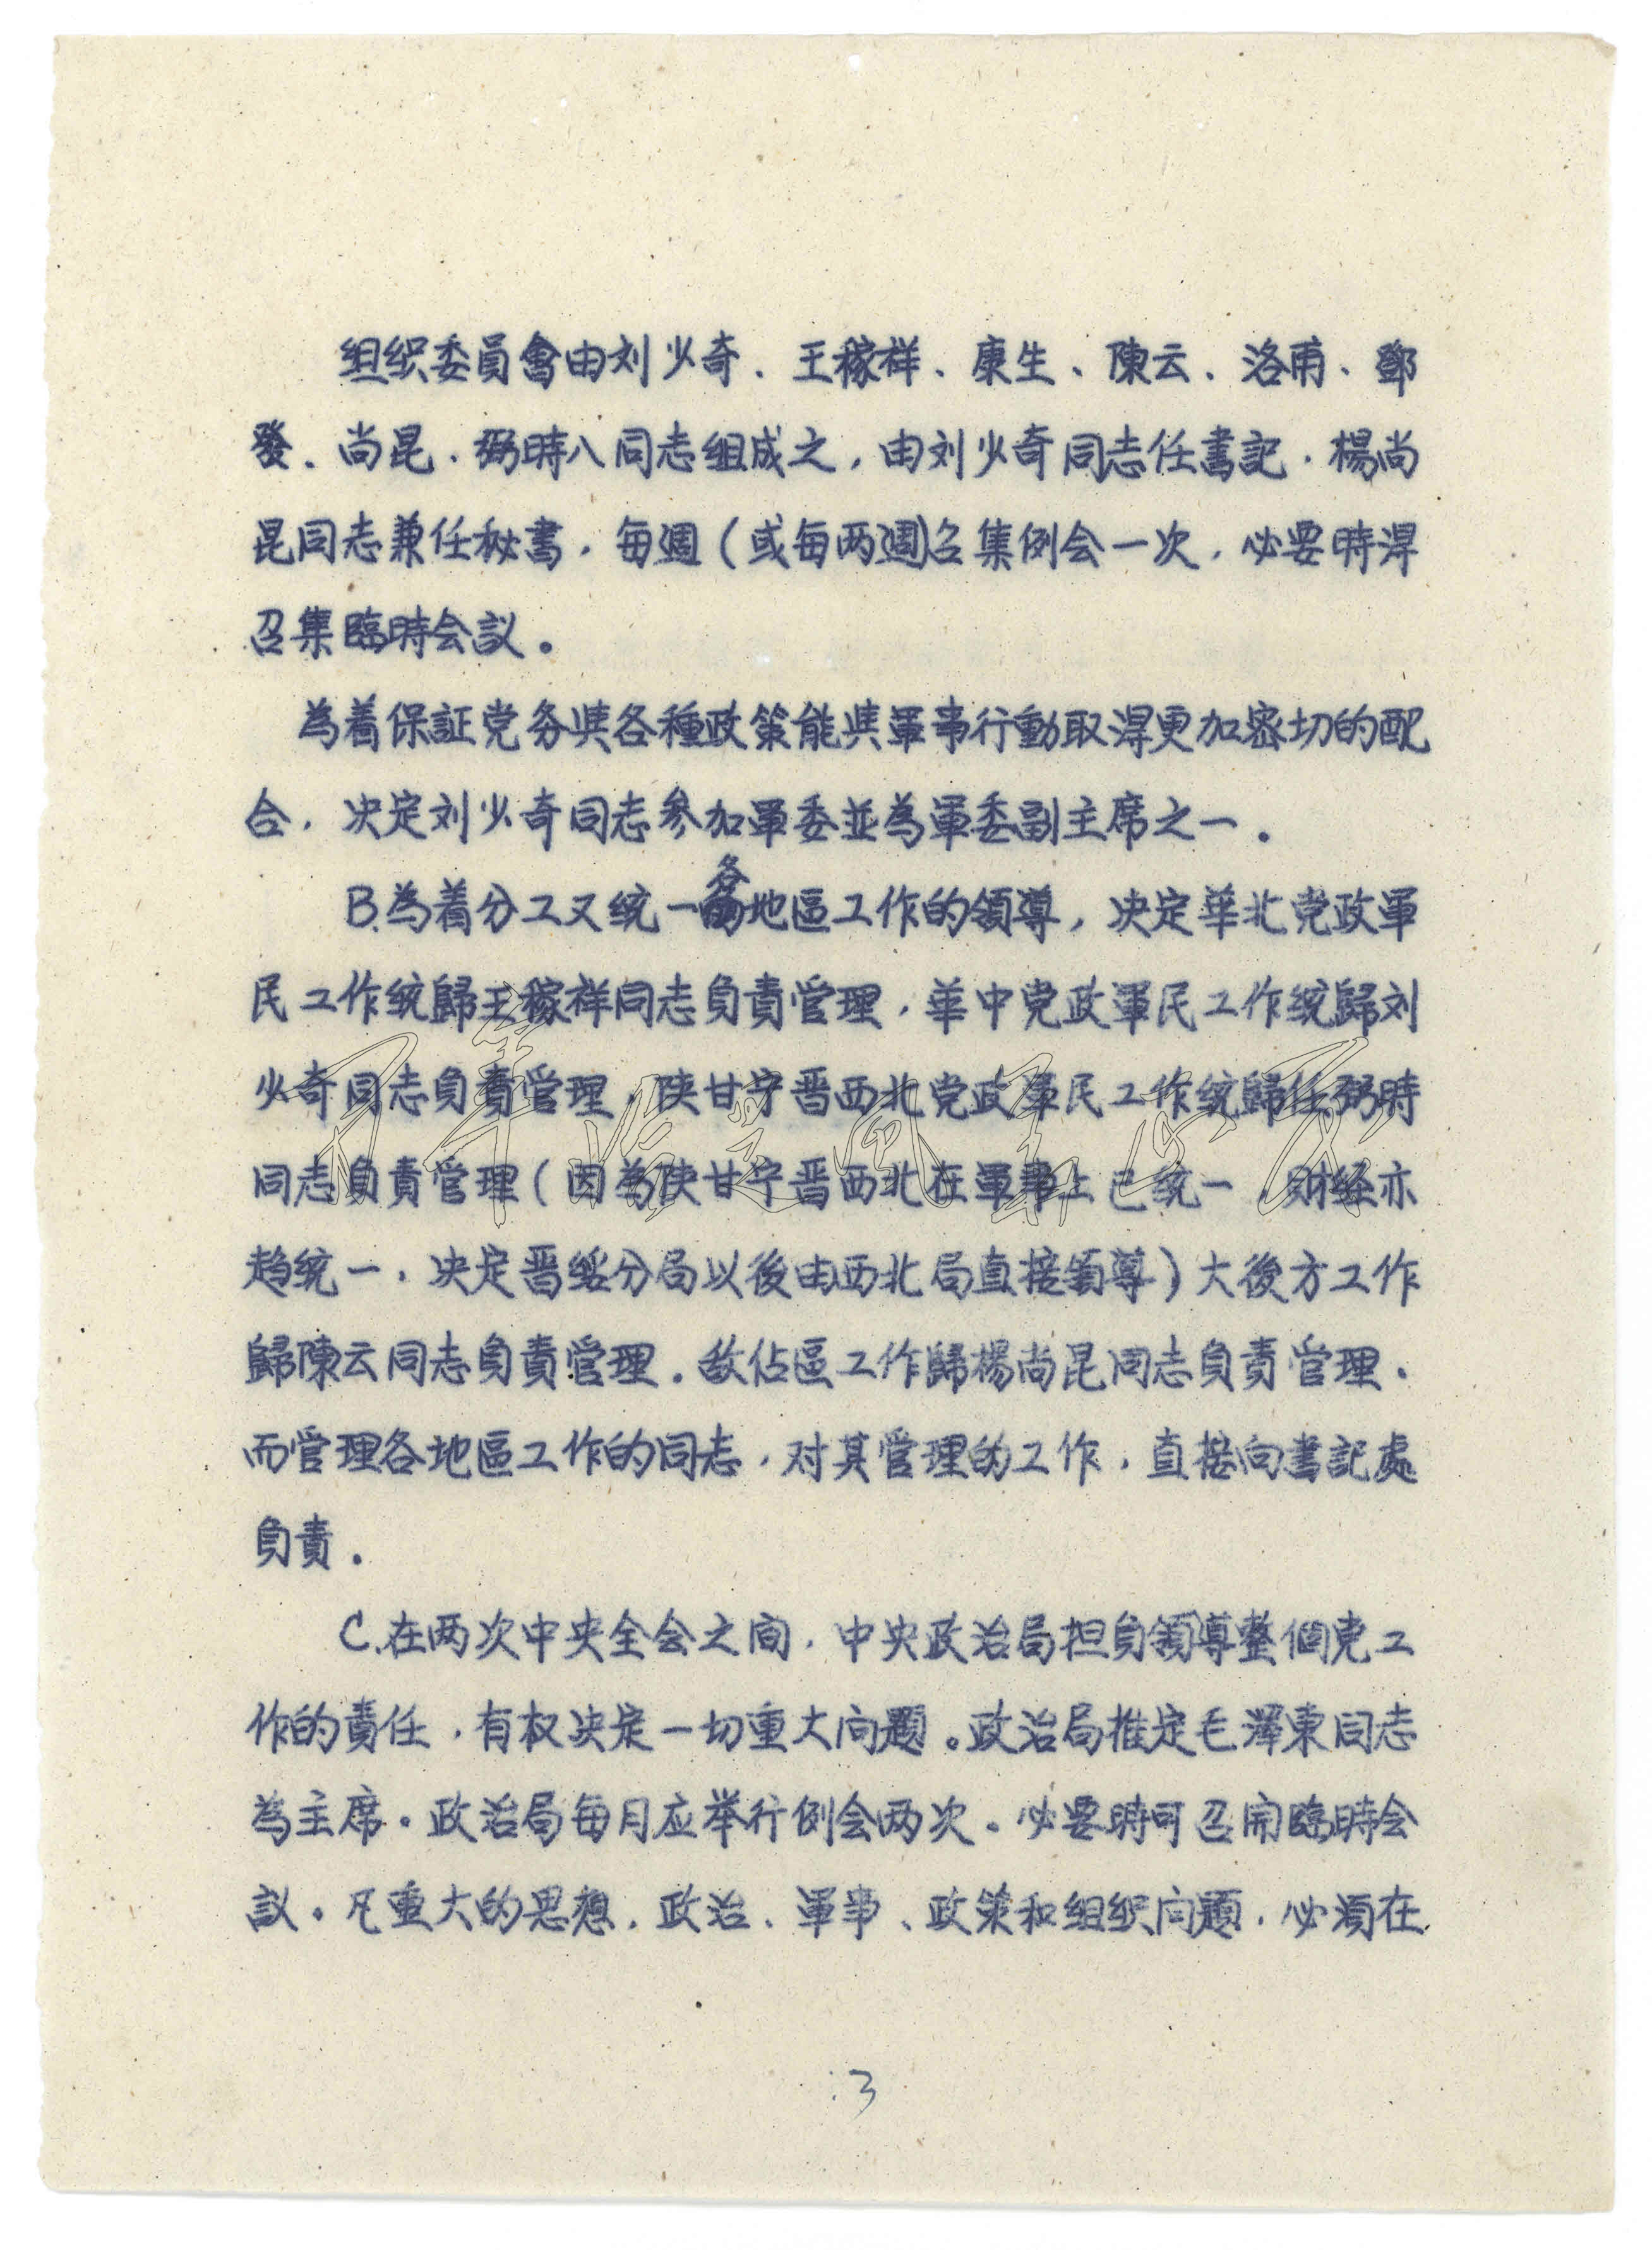 组织委員會由刘少奇、王稼祥、康生、陳云、洛甫、鄧
發、尚昆、弼時八同志组成之，由刘少奇同志任書記，楊尚
昆同志兼任秘書，每週（或每两週）召集例会一次，必要時得
召集臨時会议。
為着保証党务與各種政策能與軍事行動取得更加密切的配
合，决定刘少奇同志参加軍委並為軍委副主席之一。
B.為着分工又统一各地區工作的領導，决定華北党政軍
民工作统歸王稼祥同志負責管理，華中党政軍民工作统歸刘
少奇同志負責管理，陕甘宁晋西北党政軍民工作统歸任弼時
同志負責管理（因為陕甘宁晋西北在軍事上已统一，财经亦
趋统一，决定晋绥分局以後由西北局直接領導）大後方工作
歸陳云同志負責管理。敌佔區工作歸楊尚昆同志負責管理。
而管理各地區工作的同志，对其管理的工作，直接向書記處
負責。
C.在两次中央全会之间，中央政治局担負領導整個党工
作的責任，有权决定一切重大问題。政治局推定毛澤東同志
為主席。政治局每月应举行例会两次。必要時可召開臨時会
议。凡重大的思想、政治、軍事、政策和组织问題，必須在
3